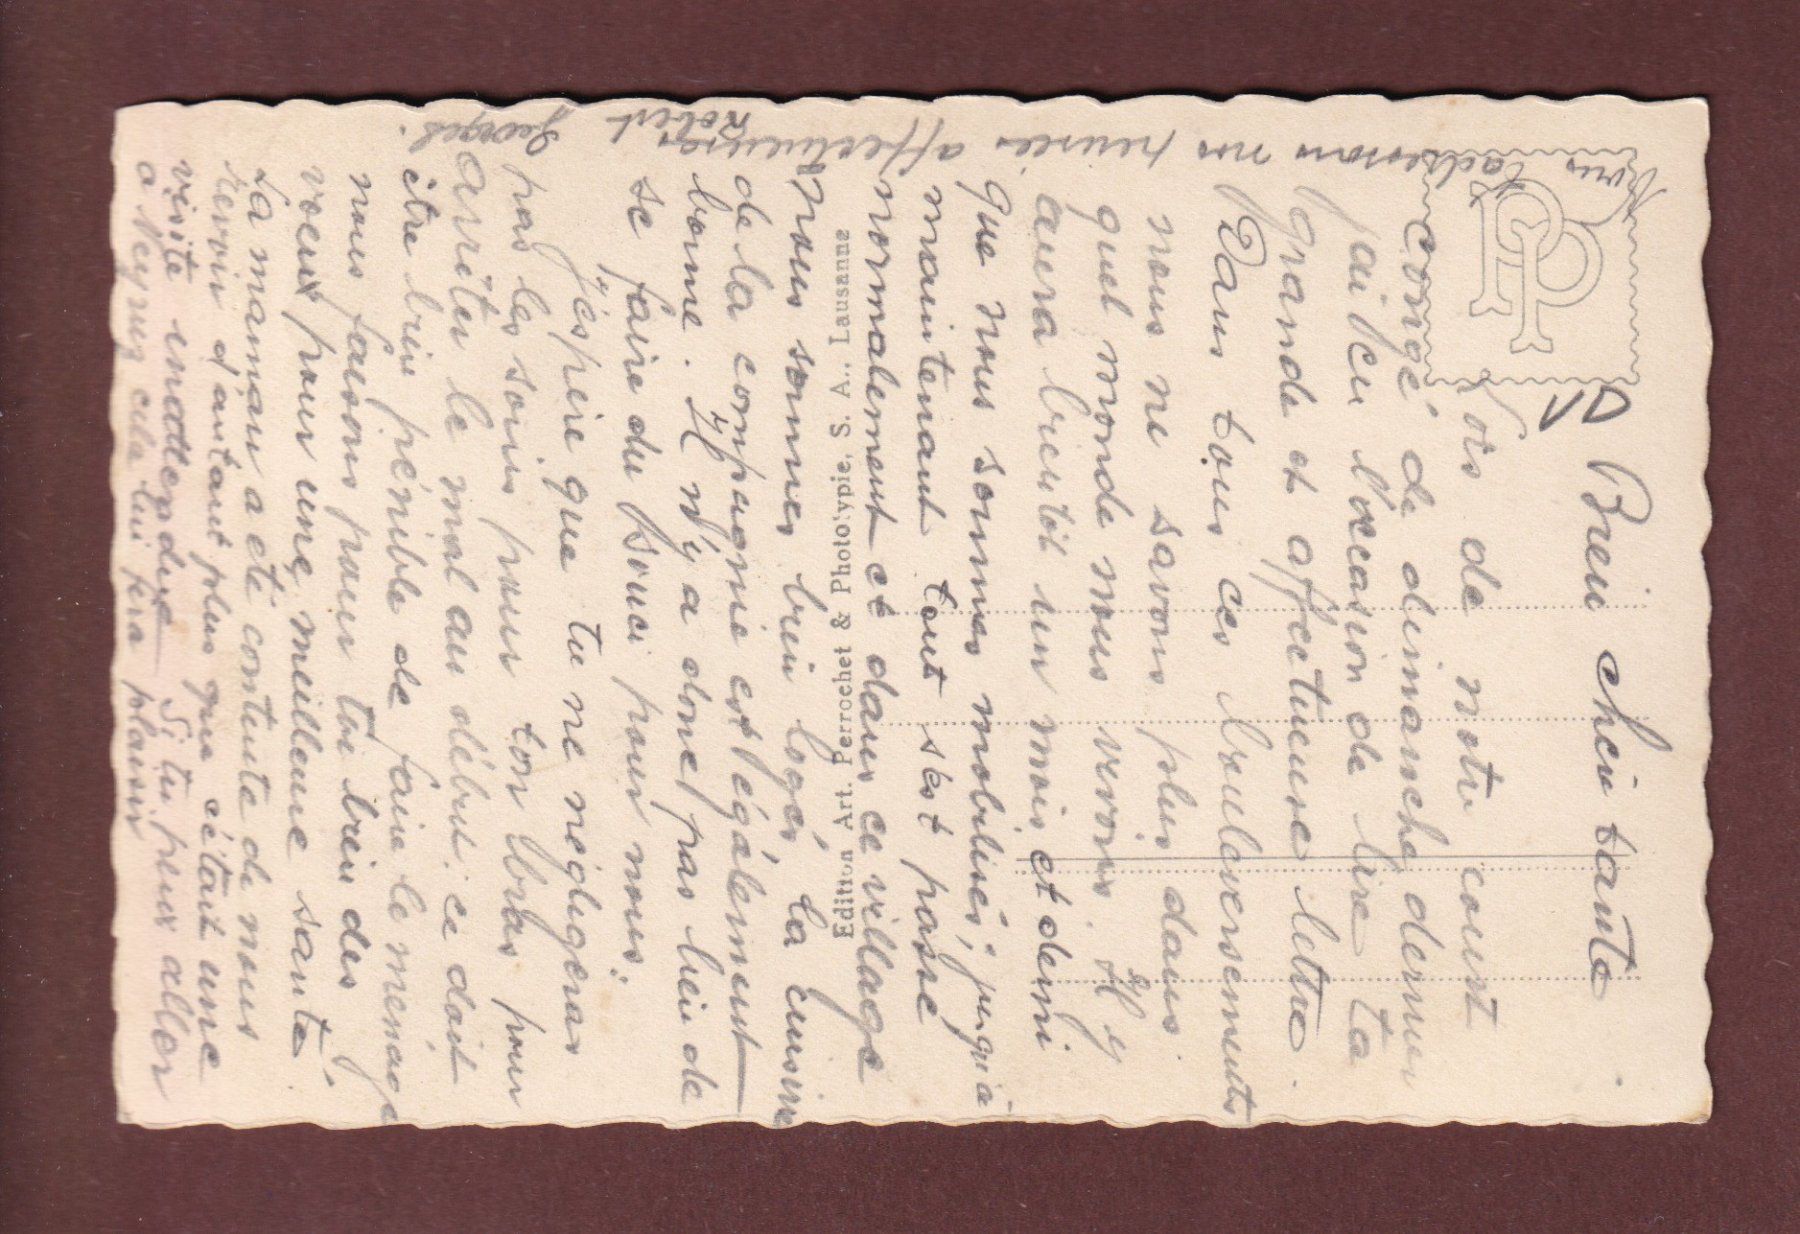 Bien chère tante
Lors de notre court
congé de dimanche dernier
j'ai pu l'occasion de lire ta
grande et affectueuse lettre.
Dans tous ces bouleversements
nous ne savons plus dans
quel monde nous vivons. Il y
aura bientôt un mois et demi
que nous sommes mobilisés, jusqu'à
maintenant tout s'est passé
normalement et dans ce village
nous sommes bien logés, la cuisine
de la compagnie est également
bonne. Il n'y a donc pas lieu de
se faire du souci pour nous.
J'éspère que tu ne négligeras
pas les soins pour ton bras pour
arrêter le mal au début. ce doit
être bien pénible de faire le ménage
nous faisons pour toi bien des
voeux pour une meilleure santé.
La maman a été contente de nous
revoir d'autant plus que c'était une
visite inattendue. Si tu peux aller
à Neyruz cela lui fera plaisir
Nous t'adressons nos pensées affectueuses
Robert
Georges.
Edition Art. Perrochet & Phototypie, S. A., Lausanne